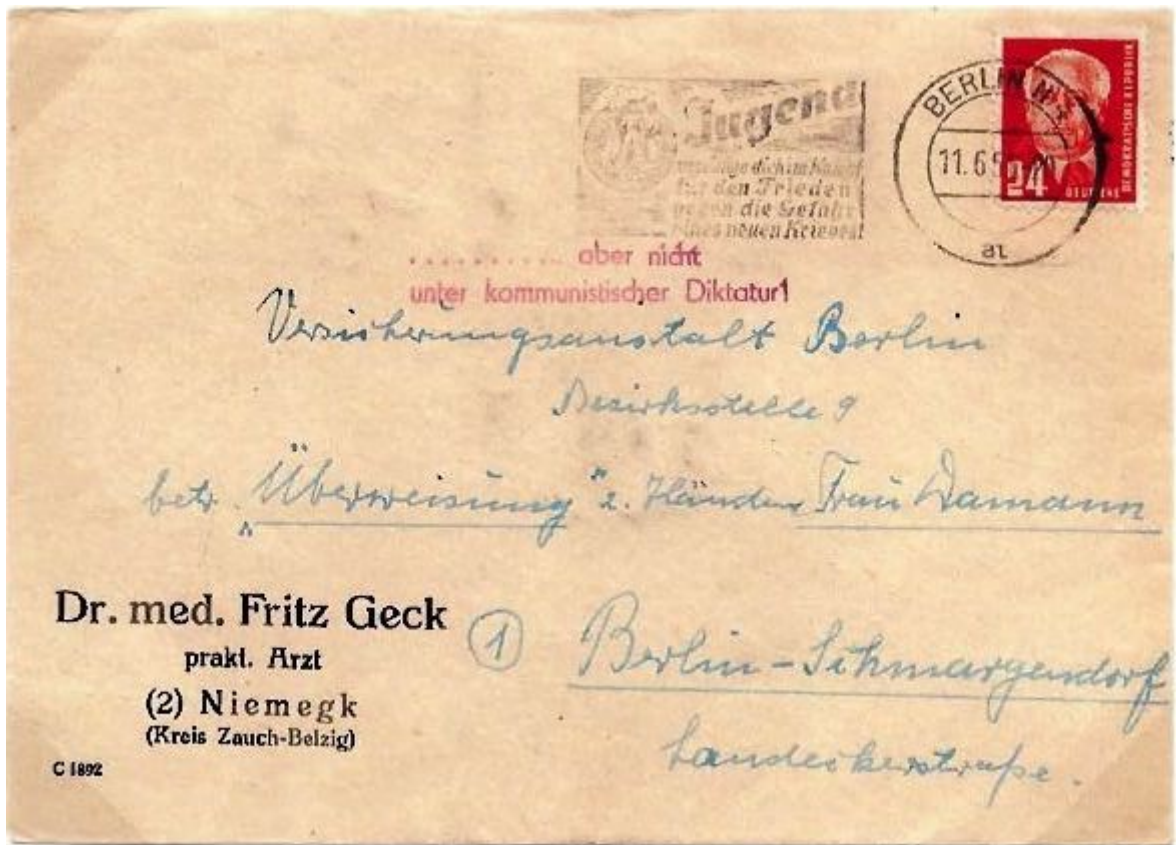 Jugend
vereinige dich im Kampf
für den Frieden
gegen die Gefahr
eines neuen Krieges!
BERLIN
11.6.5
at
24
DEUTSCHE
DEMOKRATISCHE REPUBLIK
.......... aber nicht
unter kommunistischer Diktatur!
Versicherungsanstalt Berlin
Bezirksstelle 9
betr. „Überweisung" z. Händen Frau Damann
Dr. med. Fritz Geck
prakt. Arzt
(2) Niemegk
(Kreis Zauch-Belzig)
C 1892
1 Berlin-Schmargendorf
Landeckerstraße.